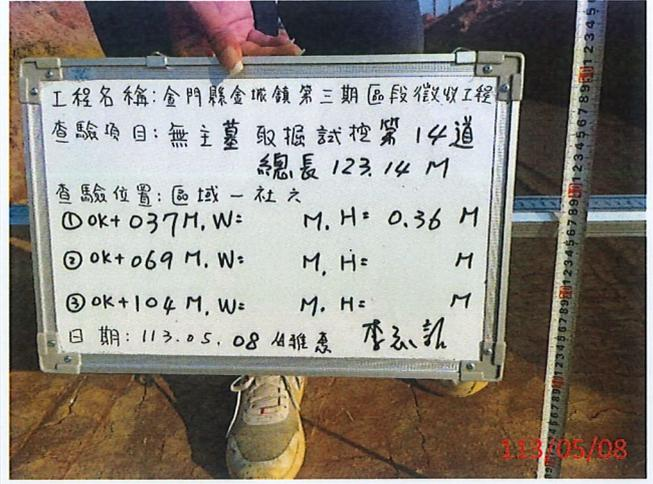 工程名稱:金門縣金城鎮第三期區段徵收工程
查驗項目:無主墓取掘試挖第14道
總長123.14 M
查驗位置:區域一社六
①0K+037M, W= M, H= 0.36 M
②0K+069M, W= M, H= M
③0K+104M, W= M, H= M
日期:113.05.08
113/05/08